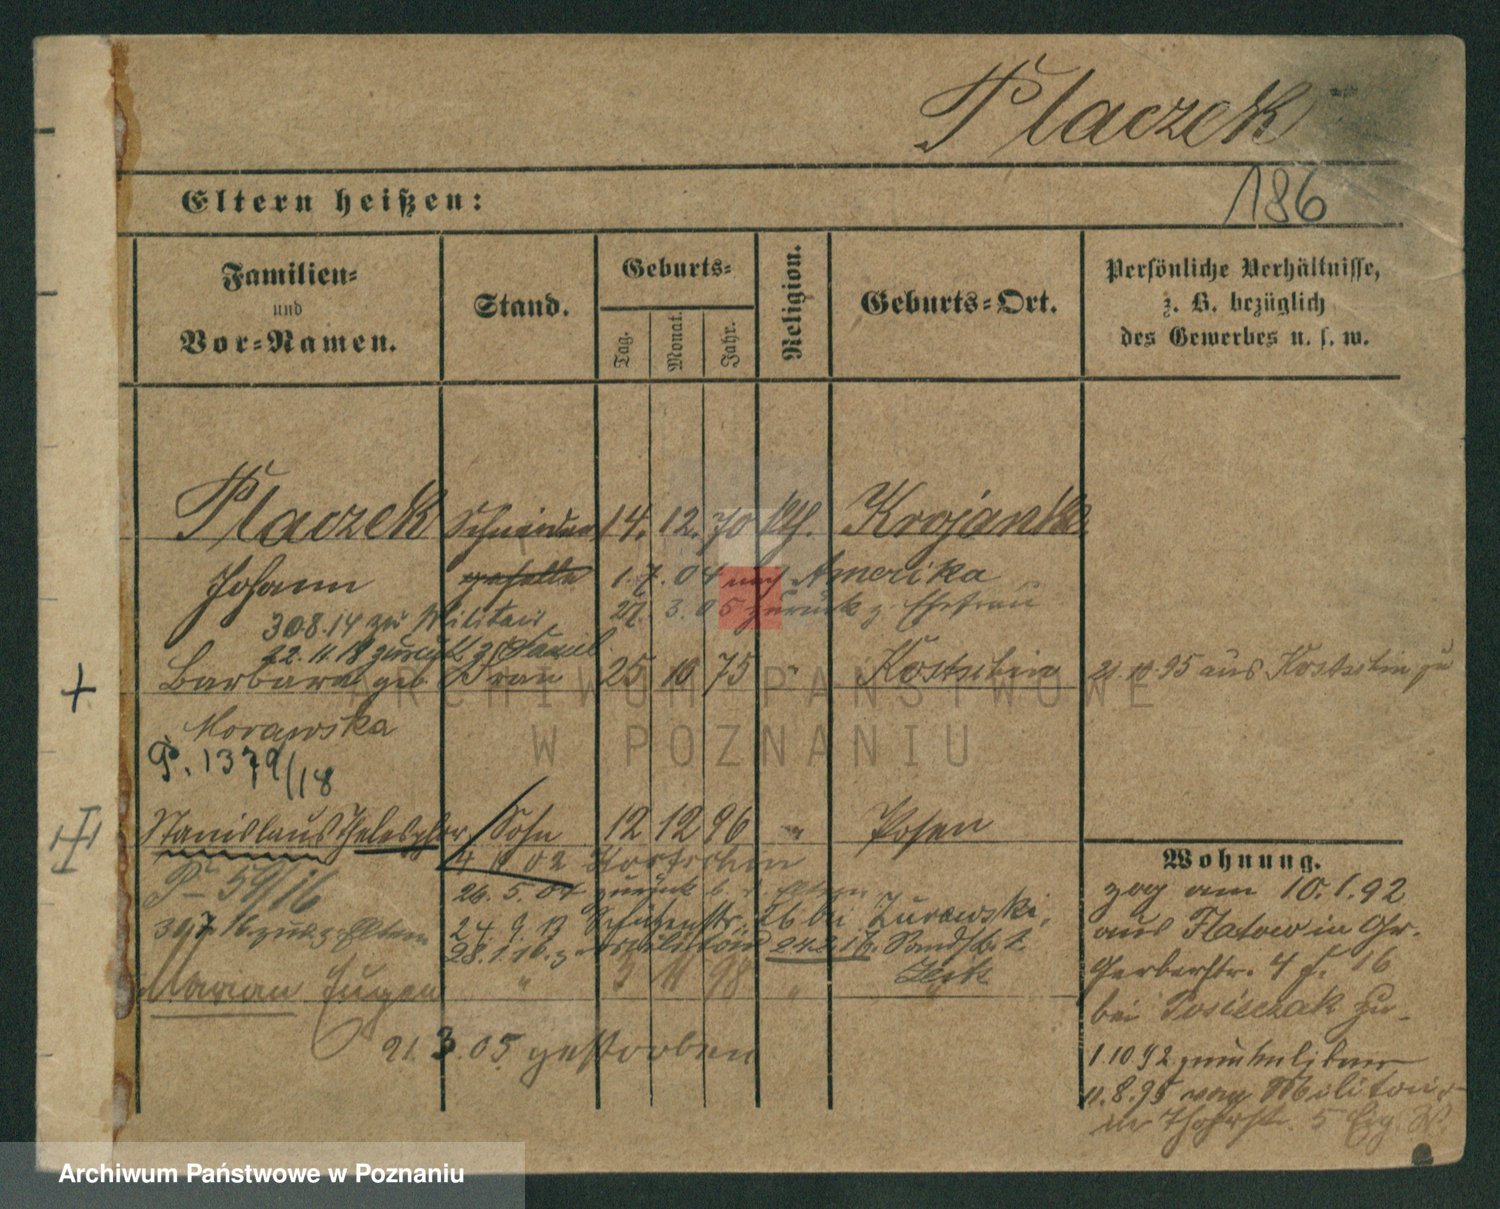 Placzek
186
Eltern heißen:
Familien-
und
Vor-Namen.
Stand.
Geburts-
Tag.
Monat.
Jahr.
Religion.
Geburts-Ort.
Persönliche Verhältnisse,
z. B. bezüglich
des Gewerbes u. s. w.
Placzek Schneider 14. 12. 70 kth. Krojanke
Johann geselle 1. 7. 04 nach Amerika
30.8.14 zu Militair 27. 3. 05 zurück z. Ehefrau
22.11.18 zurück z. Famil
Barbara geb. Frau 25 10 75 " Kostschin 21.10.95 aus Kostschin zu
Morawska
P. 1379/18
Stanislaus Thelesphor Sohn 12 12 96 " Posen
4 02 Kostschin
P 59/16 26. 5. 04 zurück
24 9 13 Schützenstr. bei Zurawski,
28.1.16. z. Militär 24.2.16. Sandstr. 2.
Marian Eugen " 3 11 98 "
21. 3. 05 gestorben
Wohnung.
zog am 10.1.92
aus Flatow in Gr.
Gerberstr. 4 f. 16
bei
1.10 92
11.8.95 vom Militair
in 5
ARCHIWUM PAŃSTWOWE
W POZNANIU
Archiwum Państwowe w Poznaniu